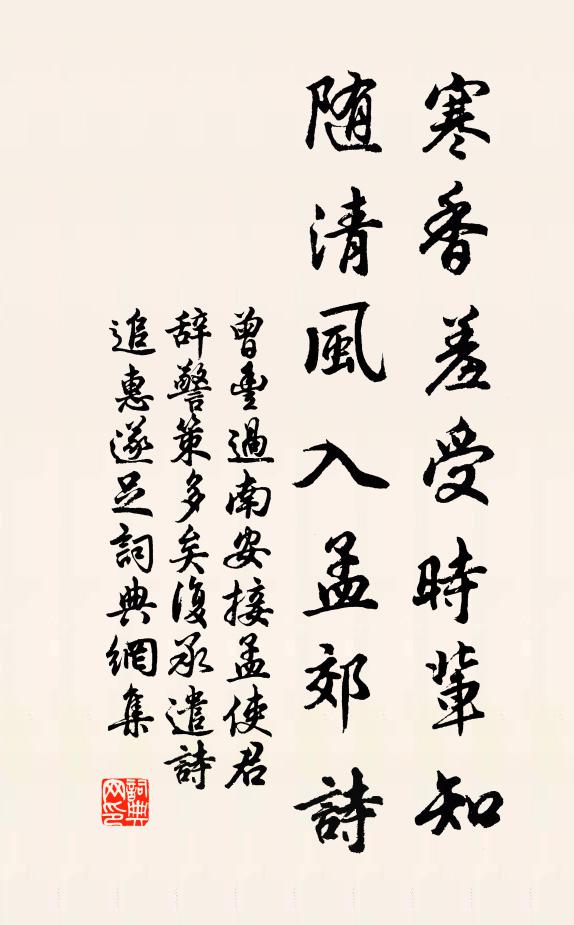 寒香羞受時輩知
随清風入孟郊詩
曾豊過南安接孟使君
辞警策多矣復承遣詩
追惠遂足詞典網集
詞典网印